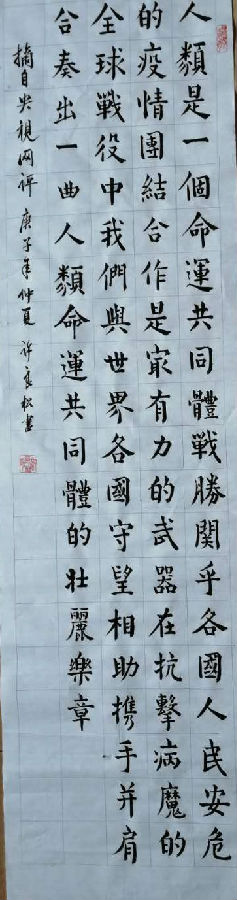 人類是一個命運共同體戰勝関乎各國人民安危
的疫情團結合作是家有力的武器在抗擊病魔的
全球戰役中我們與世界各國守望相助携手并肩
合奏出一曲人類命運共同體的壯麗樂章
摘自央視网评 庚子年仲夏 许良松書